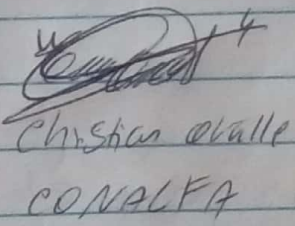 Christian ovalle
CONALFA